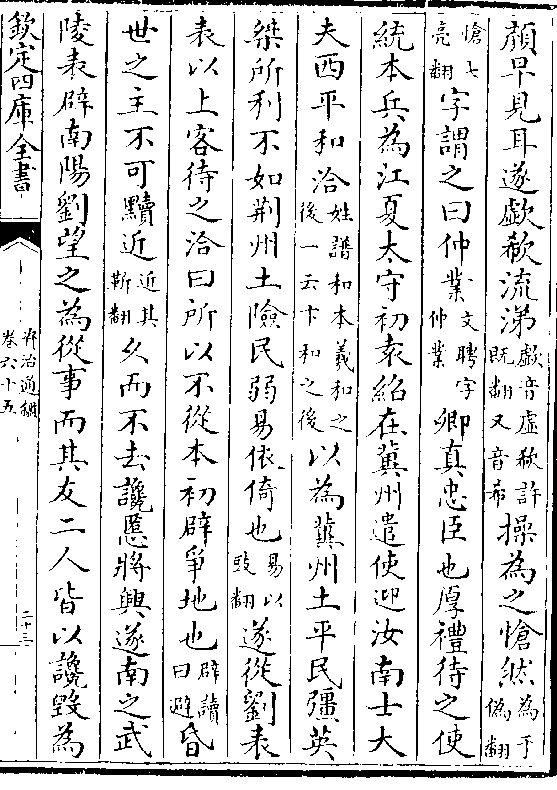 顔早見耳遂歔欷流涕歔音虚欷許既翻又音希操為之愴然為于偽翻
愴七亮翻字謂之曰仲業文聘字仲業卿真忠臣也厚禮待之使
統本兵為江夏太守初袁紹在冀州遣使迎汝南士大
夫西平和洽姓譜和本羲和之後一云卞和之後以為冀州土平民彊英
桀所利不如荆州土險民弱易依倚也易以豉翻遂從劉表
表以上客待之洽曰所以不從本初辟爭地也辟讀曰避昏
世之主不可黷近近其靳翻乆而不去讒慝將興遂南之武
陵表辟南陽劉望之為從事而其友二人皆以讒毁為
欽定四庫全書
資治通鑑
卷六十五
二十三